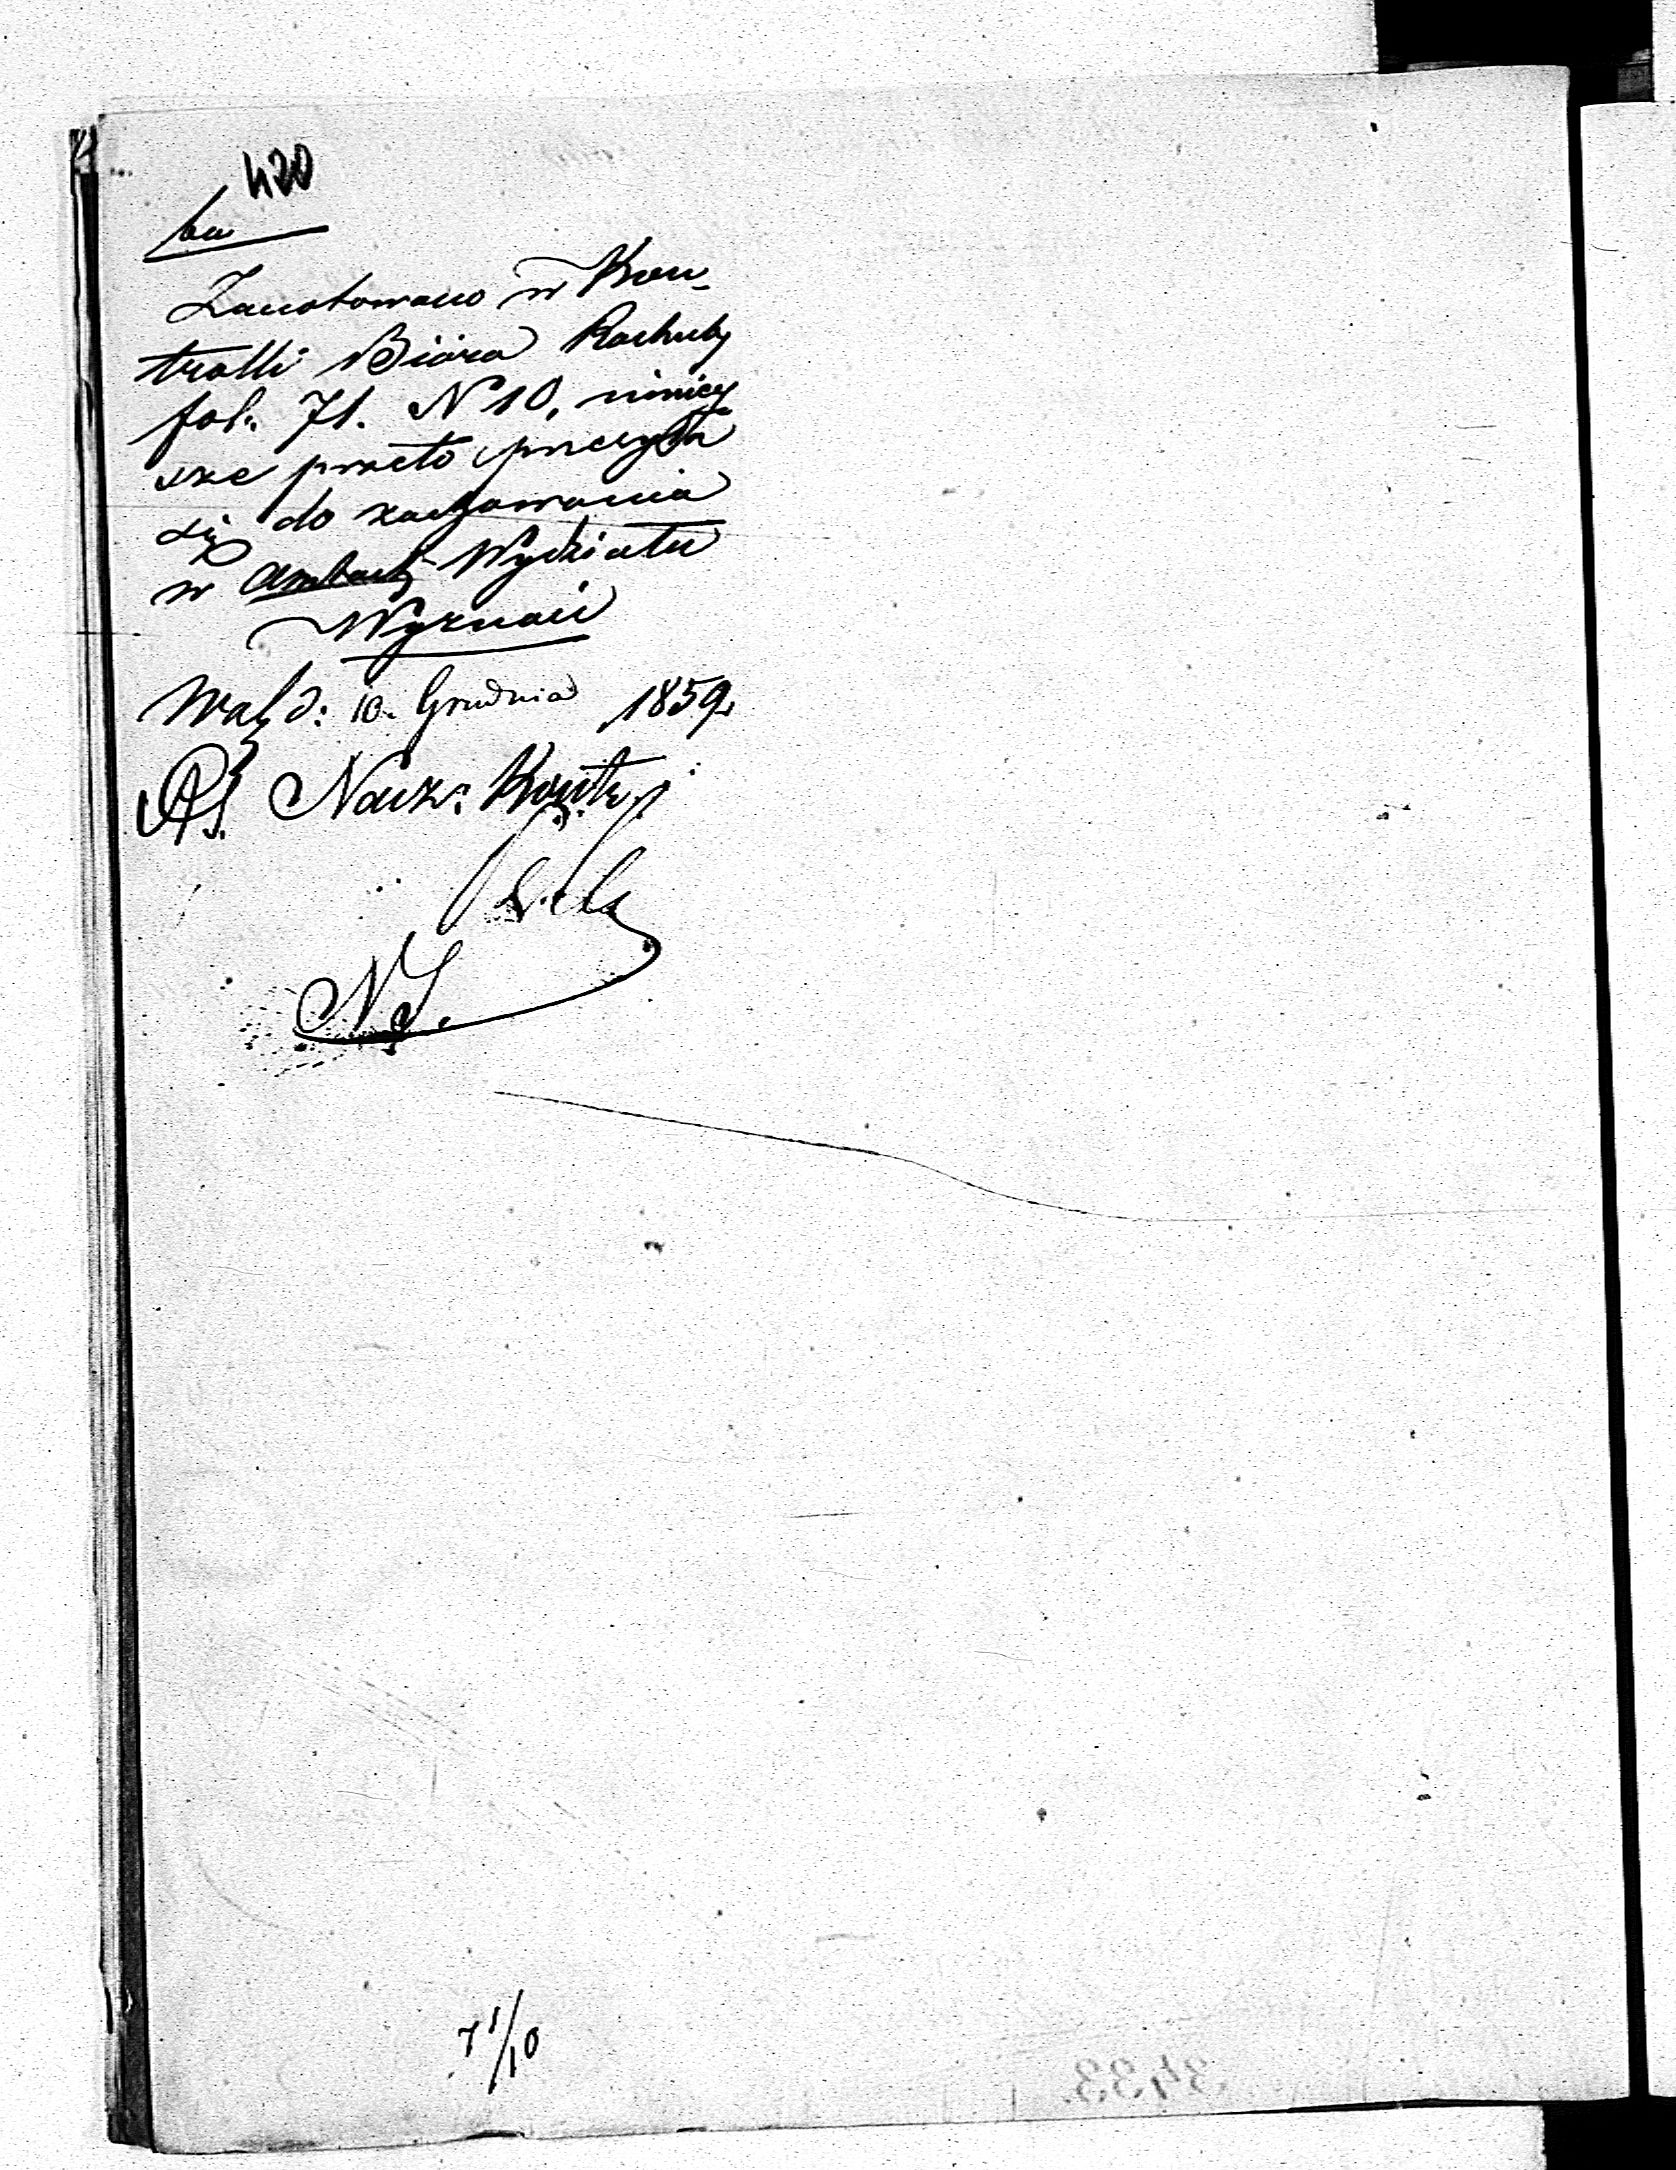 420
Zanotowano w Kon-
trolli Bióra Rachuby
fol: 71. N 10, niniej
sze przeto
się do zachowania
w Wydziału
Wyznań
10. Grudnia 1859.
Nacz: Kontr:
N S.
71/10
3433.